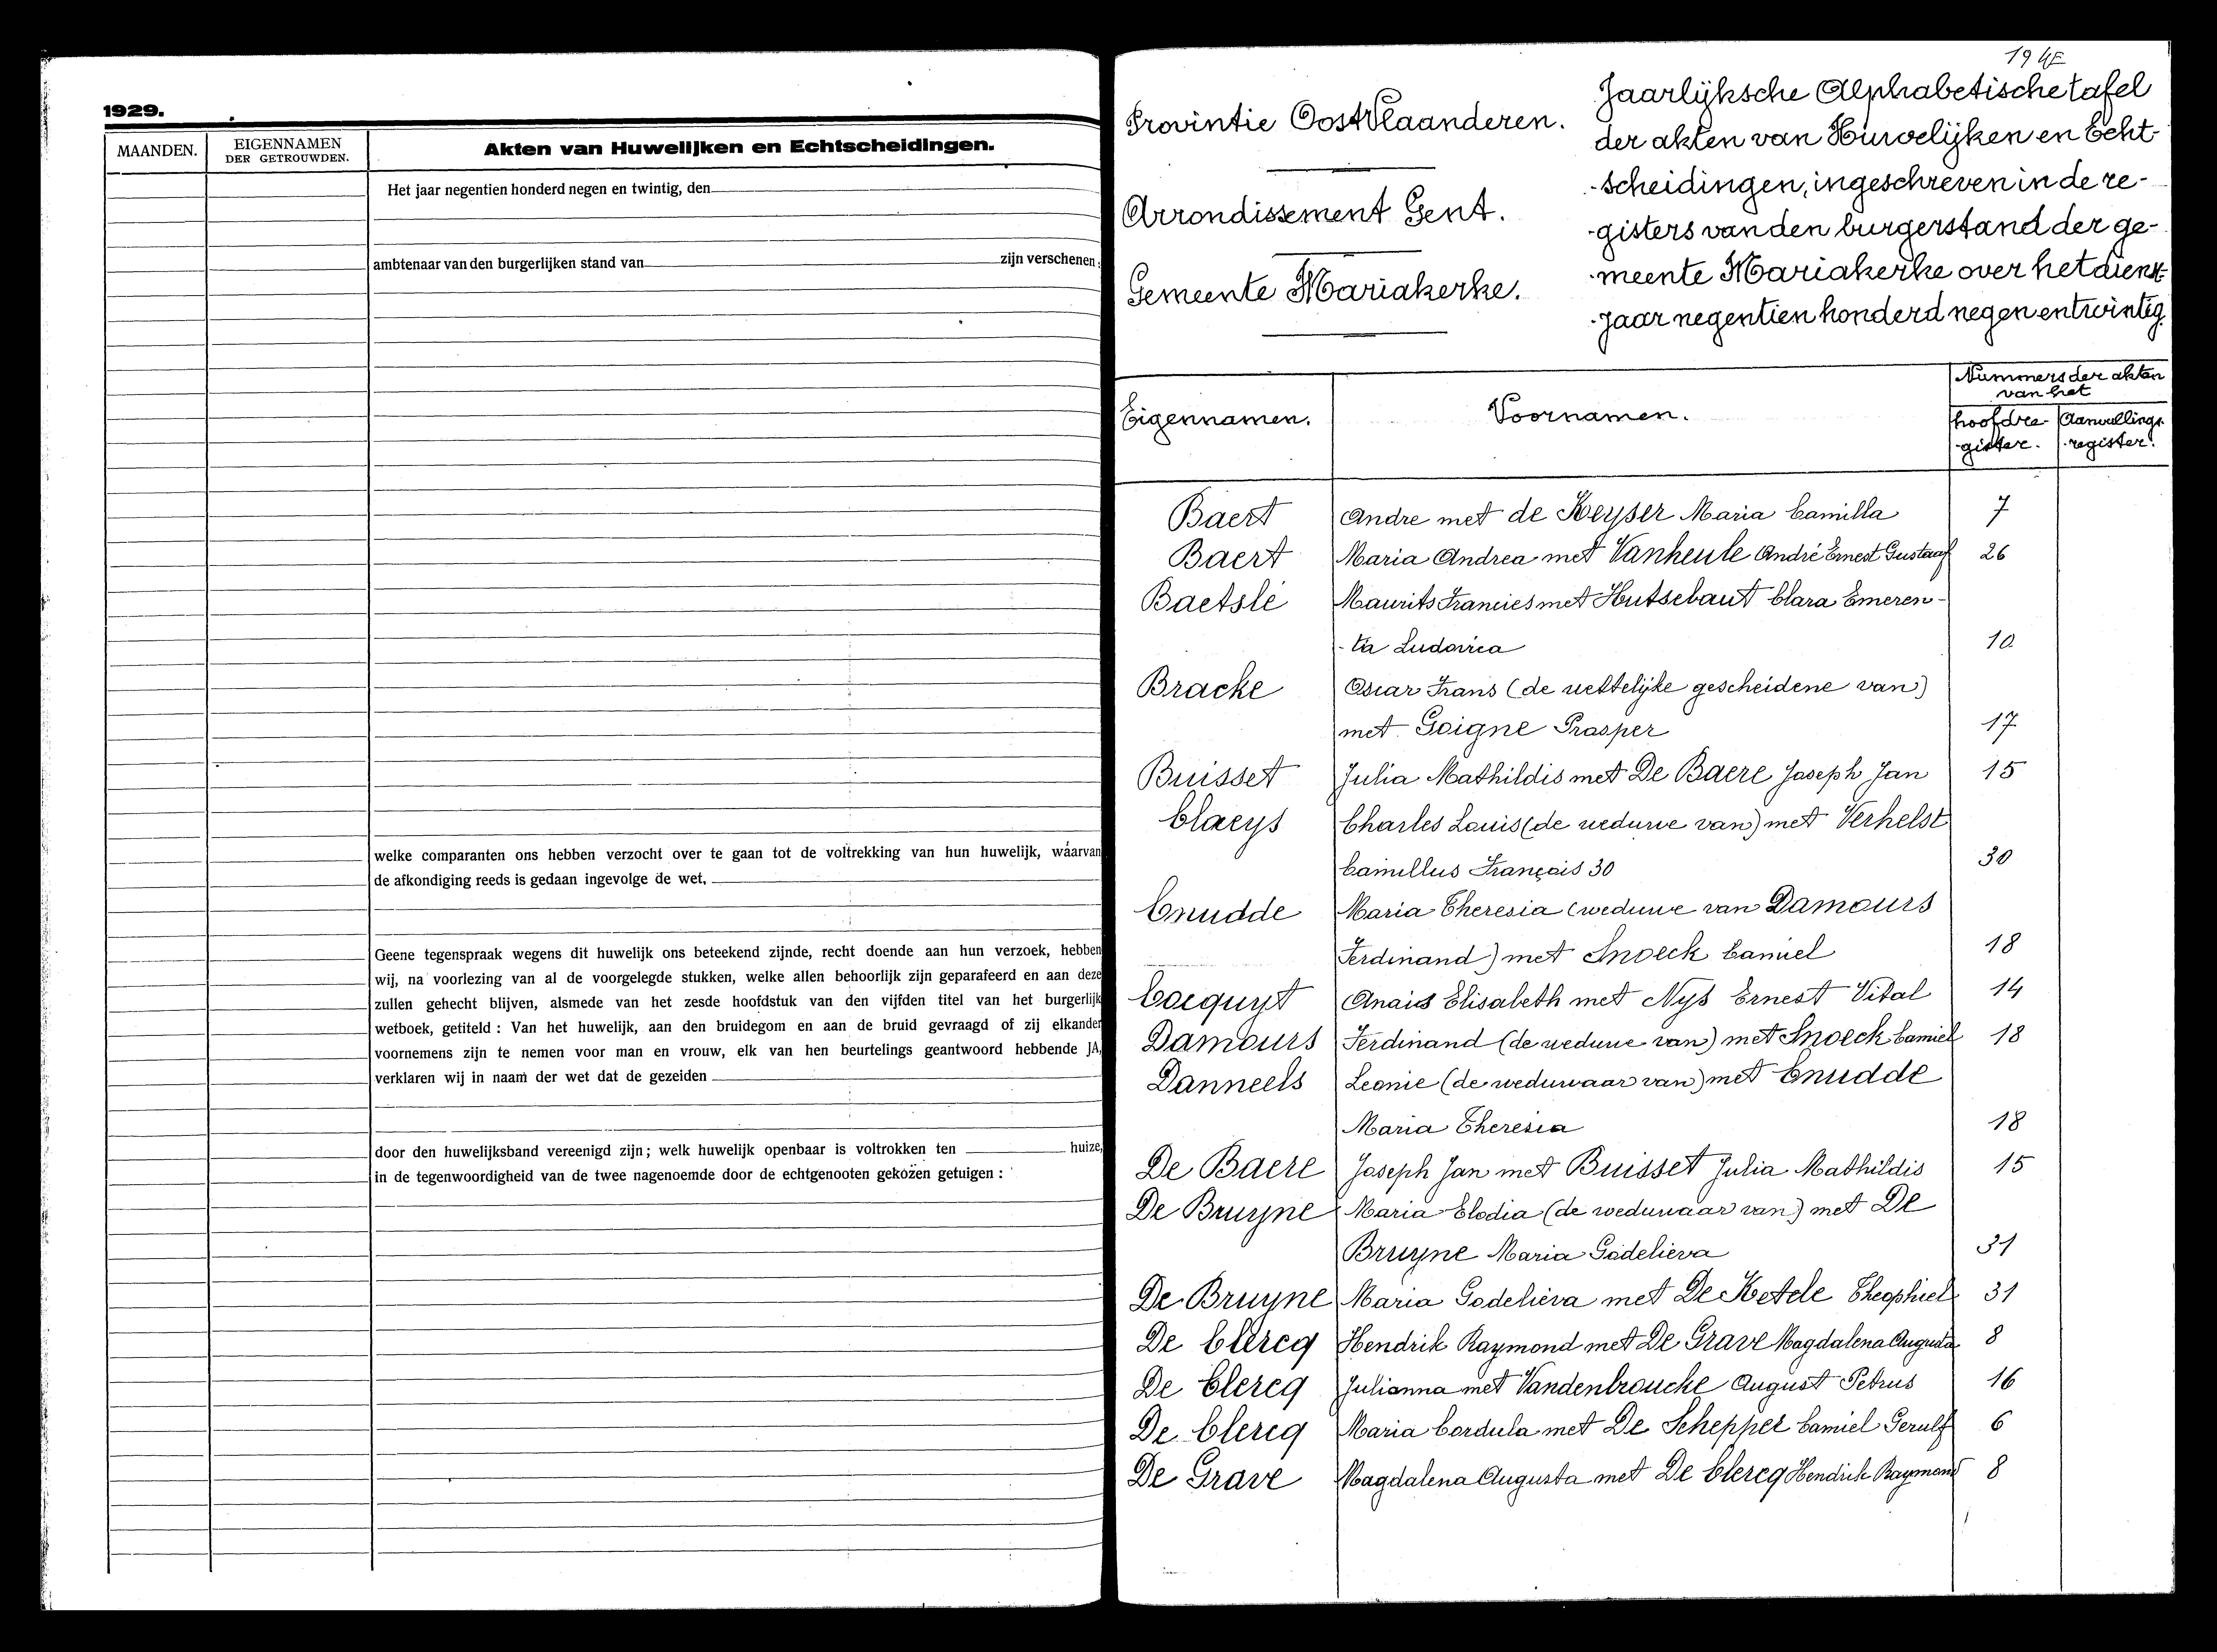 1929.
MAANDEN.
EIGENNAMEN
DER GETROUWDEN.
Akten van Huwelijken en Echtscheidingen.
Het jaar negentien honderd negen en twintig, den
ambtenaar van den burgerlijken stand van zijn verschenen:
welke comparanten ons hebben verzocht over te gaan tot de voltrekking van hun huwelijk, waarvan
de afkondiging reeds is gedaan ingevolge de wet.
Geene tegenspraak wegens dit huwelijk ons beteekend zijnde, recht doende aan hun verzoek, hebben
wij, na voorlezing van al de voorgelegde stukken, welke allen behoorlijk zijn geparafeerd en aan deze
zullen gehecht blijven, alsmede van het zesde hoofdstuk van den vijfden titel van het burgerlijk
wetboek, getiteld : Van het huwelijk, aan den bruidegom en aan de bruid gevraagd of zij elkander
voornemens zijn te nemen voor man en vrouw, elk van hen beurtelings geantwoord hebbende JA,
verklaren wij in naam der wet dat de gezeiden
door den huwelijksband vereenigd zijn; welk huwelijk openbaar is voltrokken ten huize,
in de tegenwoordigheid van de twee nagenoemde door de echtgenooten gekozen getuigen :
Provintie OostVlaanderen.
Arrondissement Gent.
Gemeente Mariakerke.
Jaarlijksche Alphabetische tafel
der akten van Huwelijken en Echt-
-scheidingen, ingeschreven in de re-
-gisters van den burgerstand der ge-
-meente Mariakerke over het dienst-
-jaar negentien honderd negen en twintig
Eigennamen.
Voornamen.
Nummers der akten
van het
hoofdre-
-gister.
Aanvullings-
-register.
Baert Andre met de Keyser Maria Camilla 7
Baert Maria Andrea met Vanheule André Ernest Gustaaf 26
Baetslé Maurits Francies met Hutsebaut Clara Emeren-
-tia Ludovica 10
Bracke Oscar Frans (de wettelijke gescheidene van)
met Goigne Prosper 17
Buisset Julia Mathildis met De Baere Joseph Jan 15
Claeys Charles Louis (de weduwe van) met Verhelst
Camillus François 30 30
Cnudde Maria Theresia (weduwe van Damours
Ferdinand) met Snoeck Camiel 18
Cocquyt Anaïs Elisabeth met Nys Ernest Vital 14
Damours Ferdinand (de weduwe van) met Snoeck Camiel 18
Danneels Leonie (de weduwaar van) met Cnudde
Maria Theresia 18
De Baere Joseph Jan met Buisset Julia Mathildis 15
De Bruyne Maria Elodia (de weduwaar van) met De
Bruyne Maria Godelieva 31
De Bruyne Maria Godelieva met De Ketele Theophiel 31
De Clercq Hendrik Raymond met De Grave Magdalena Augusta 8
De Clercq Julianna met Vandenbroucke August Petrus 16
De Clercq Maria Cordula met De Schepper Camiel Gerulf 6
De Grave Magdalena Augusta met De Clercq Hendrik Raymond 8